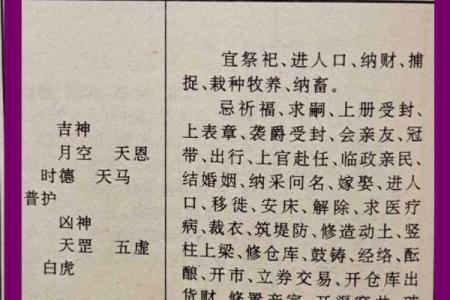 吉神
月空 天恩
时德 天马
普护
凶神
天罡 五虚
白虎
宜祭祀、进人口、纳财、捕
捉、栽种牧养、纳畜。
忌祈福、求嗣、上册受封、
上表章、袭爵受封、会亲友、冠
带、出行、上官赴任、临政亲民、
结婚姻、纳采问名、嫁娶、进人
口、移徙、安床、解除、求医疗
病、裁衣、筑堤防、修造动土、竖
柱上梁、修仓库、鼓铸、经络、酝
酿、开市、立券交易、开仓库出